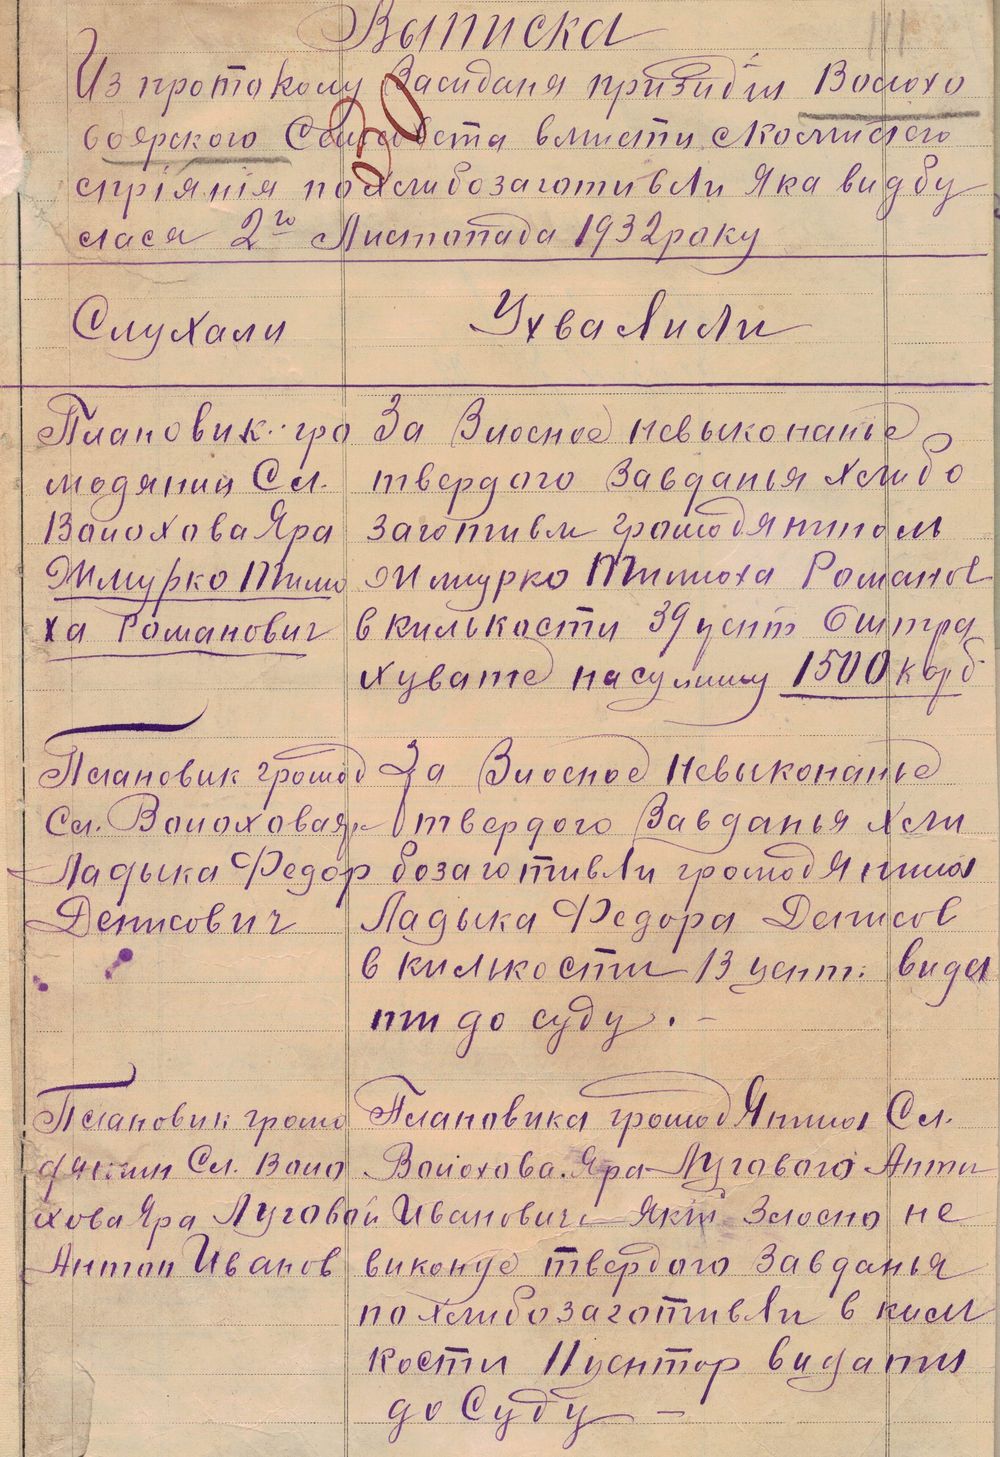 Выписка
111
Из протокому Засиданя призидіи Волохо
оярского Сельсовета вмисти скомисіею
спріянія похлибозаготивли Яка видбу
лася 2го Листопада 1932 року
Слухали Ухвалили
Плановик гро
модянин Сл.
Волохова Яра
Жмурко Тимо
ха Романович
За Злосное невыконанье
твердого Завданья хлибо
заготивли громодянином
Жмурко Тимоха Романов
в килькости 39 цент Оштра
хувате насумму 1500 карб
Плановик громод
Сл. Волоховаяр
Ладыка Федор
Денисович
За Злосное Невыконанье
твердого Завданья Хли
бозаготивли громодянина
Ладыка Федора Денисов
в килкости 13 цент. вида
ти до суду. -
Плановик громо
дянин Сл. Воло
хова Яра Луговой
Антон Иванов
Плановика громодянина Сл.
Волохова. Яра Лугового Анти
Иванович Який Злосно не
виконде твердого Завданья
по хлибозаготивли в кил
кости 11 центор видати
до Суду -